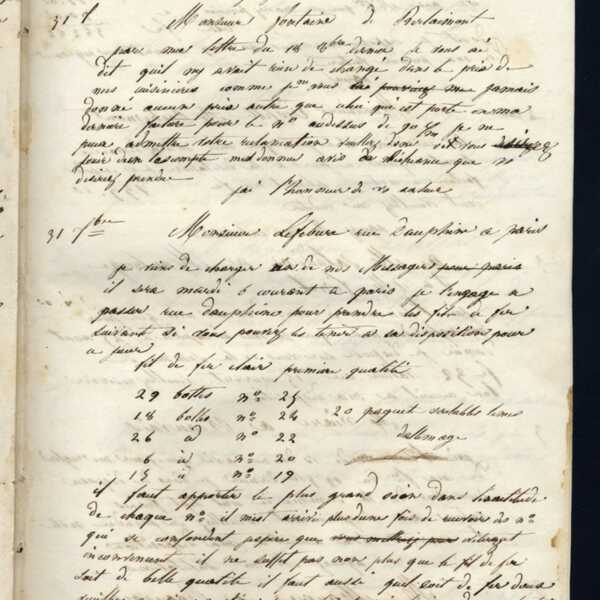 31 Monsieur fontaine de Berlaimont
par ma lettre du 18 8bre dernier je vous ai
dit quil ny avait rien de changé dans le prix de
mes cuisinieres comme je vous jamais
donné aucun prix autre que celui qui est porté en ma
derniere facture pour le no audessus de je ne
puis admettre votre reclamation veuillez donc
me donner avis de
desirez prendre
jai lhonneur de vs saluer
31 7bre Monsieur Lefebure rue Dauphine a paris
je viens de charger un de nos Messagers pour paris
il sera mardi 6 courant a paris je lengage a
passer rue dauphine pour prendre les fils de fer
suivant si vous pouvez les tenir a sa disposition pour
ce jour
fil de fer clair premiere qualité
29 bottes no 25
18 bottes no 24 20 paquet veritables limes
26 id no 22 dallemagne
6 id no 20
15 id no 19
il faut apporter le plus grand soin dans lexactitude
de chaque no il mest arrivé plus dune fois de recevoir des no
qui se confondent jespere que
inconvenient il ne suffit pas non plus que le fil de fer
soit de belle qualité il faut aussi quil soit de fer doux